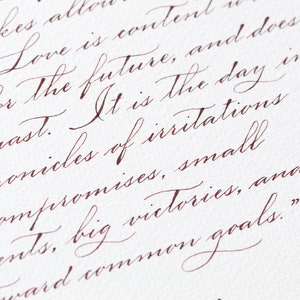 kes allow
Love is content w
or the future, and does
past. It is the day in
ronicles of irritations
compromises, small
ents, big victories, and
ward common goals."